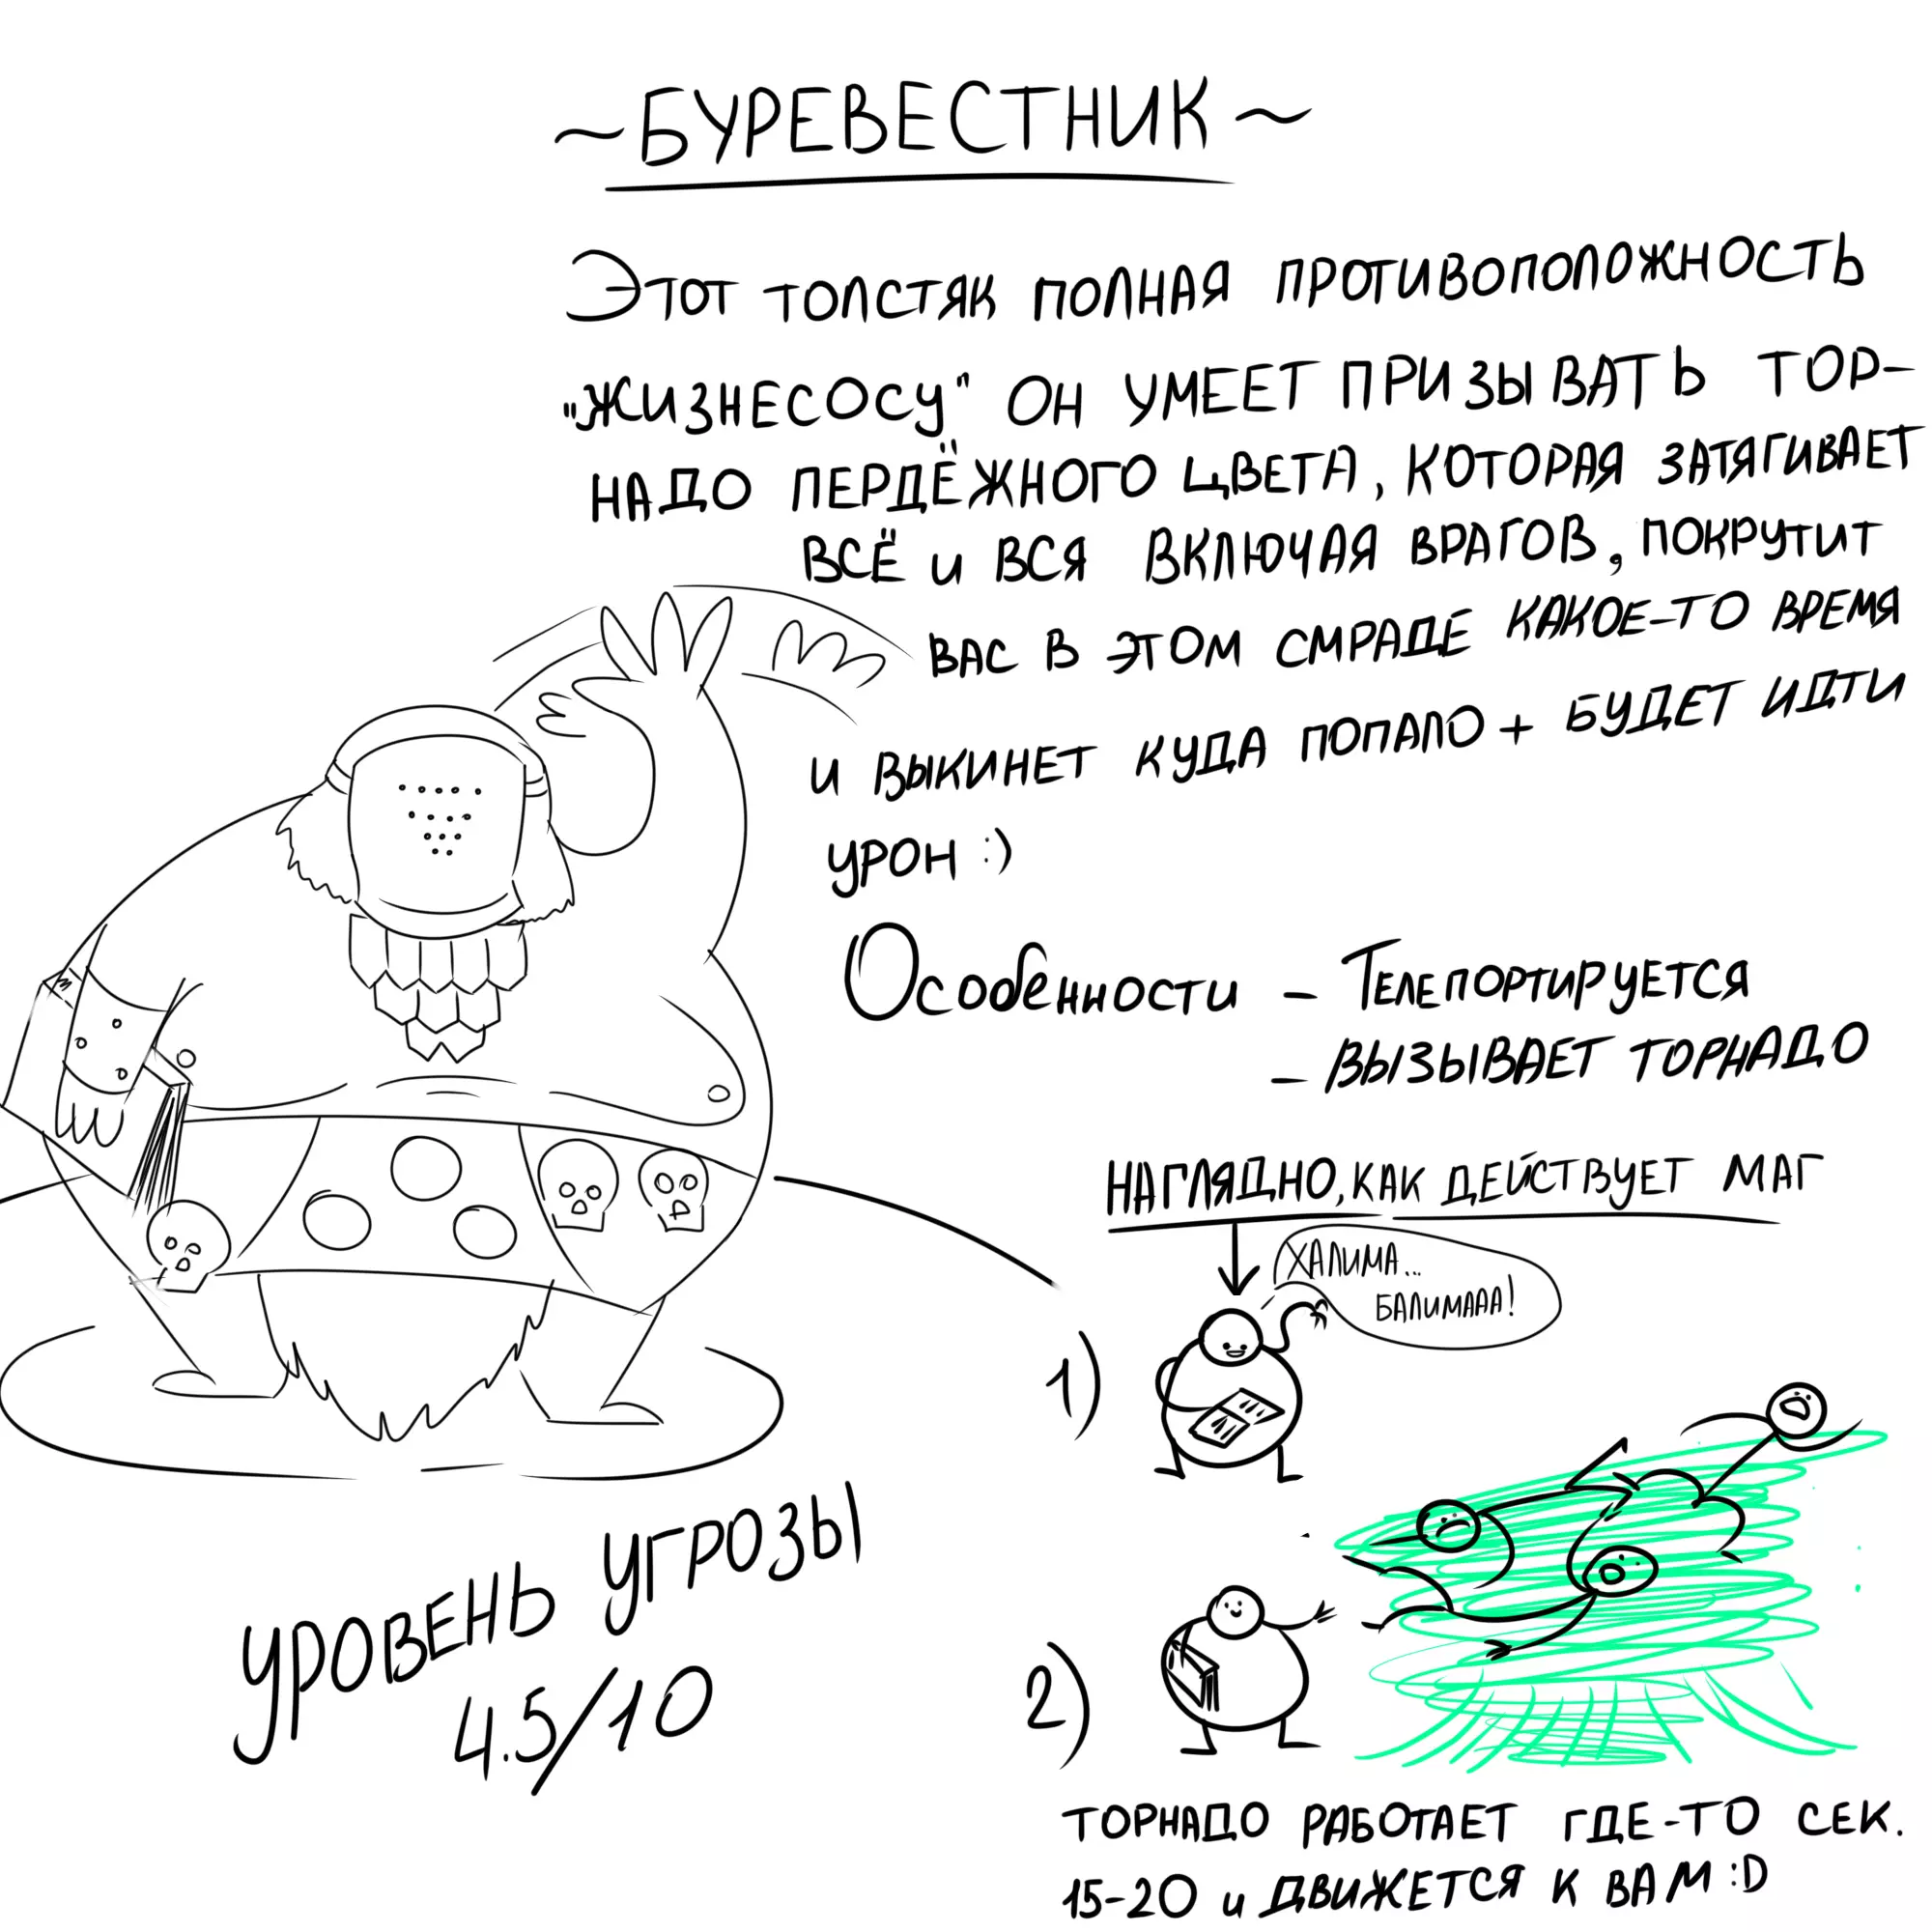 ~БУРЕВЕСТНИК~
Этот толстяк полная противоположность
"Жизнесосу" он умеет призывать тор-
надо пердёжного цвета, которая затягивает
всё и вся включая врагов, покрутит
вас в этом смраде какое-то время
и выкинет куда попало + будет идти
урон :)
Особенности - Телепортируется
- Вызывает торнадо
Наглядно, как действует маг
Халима...
Балимааа!
1)
2)
Уровень угрозы
4.5/10
Торнадо работает где-то сек.
15-20 и движется к вам :D